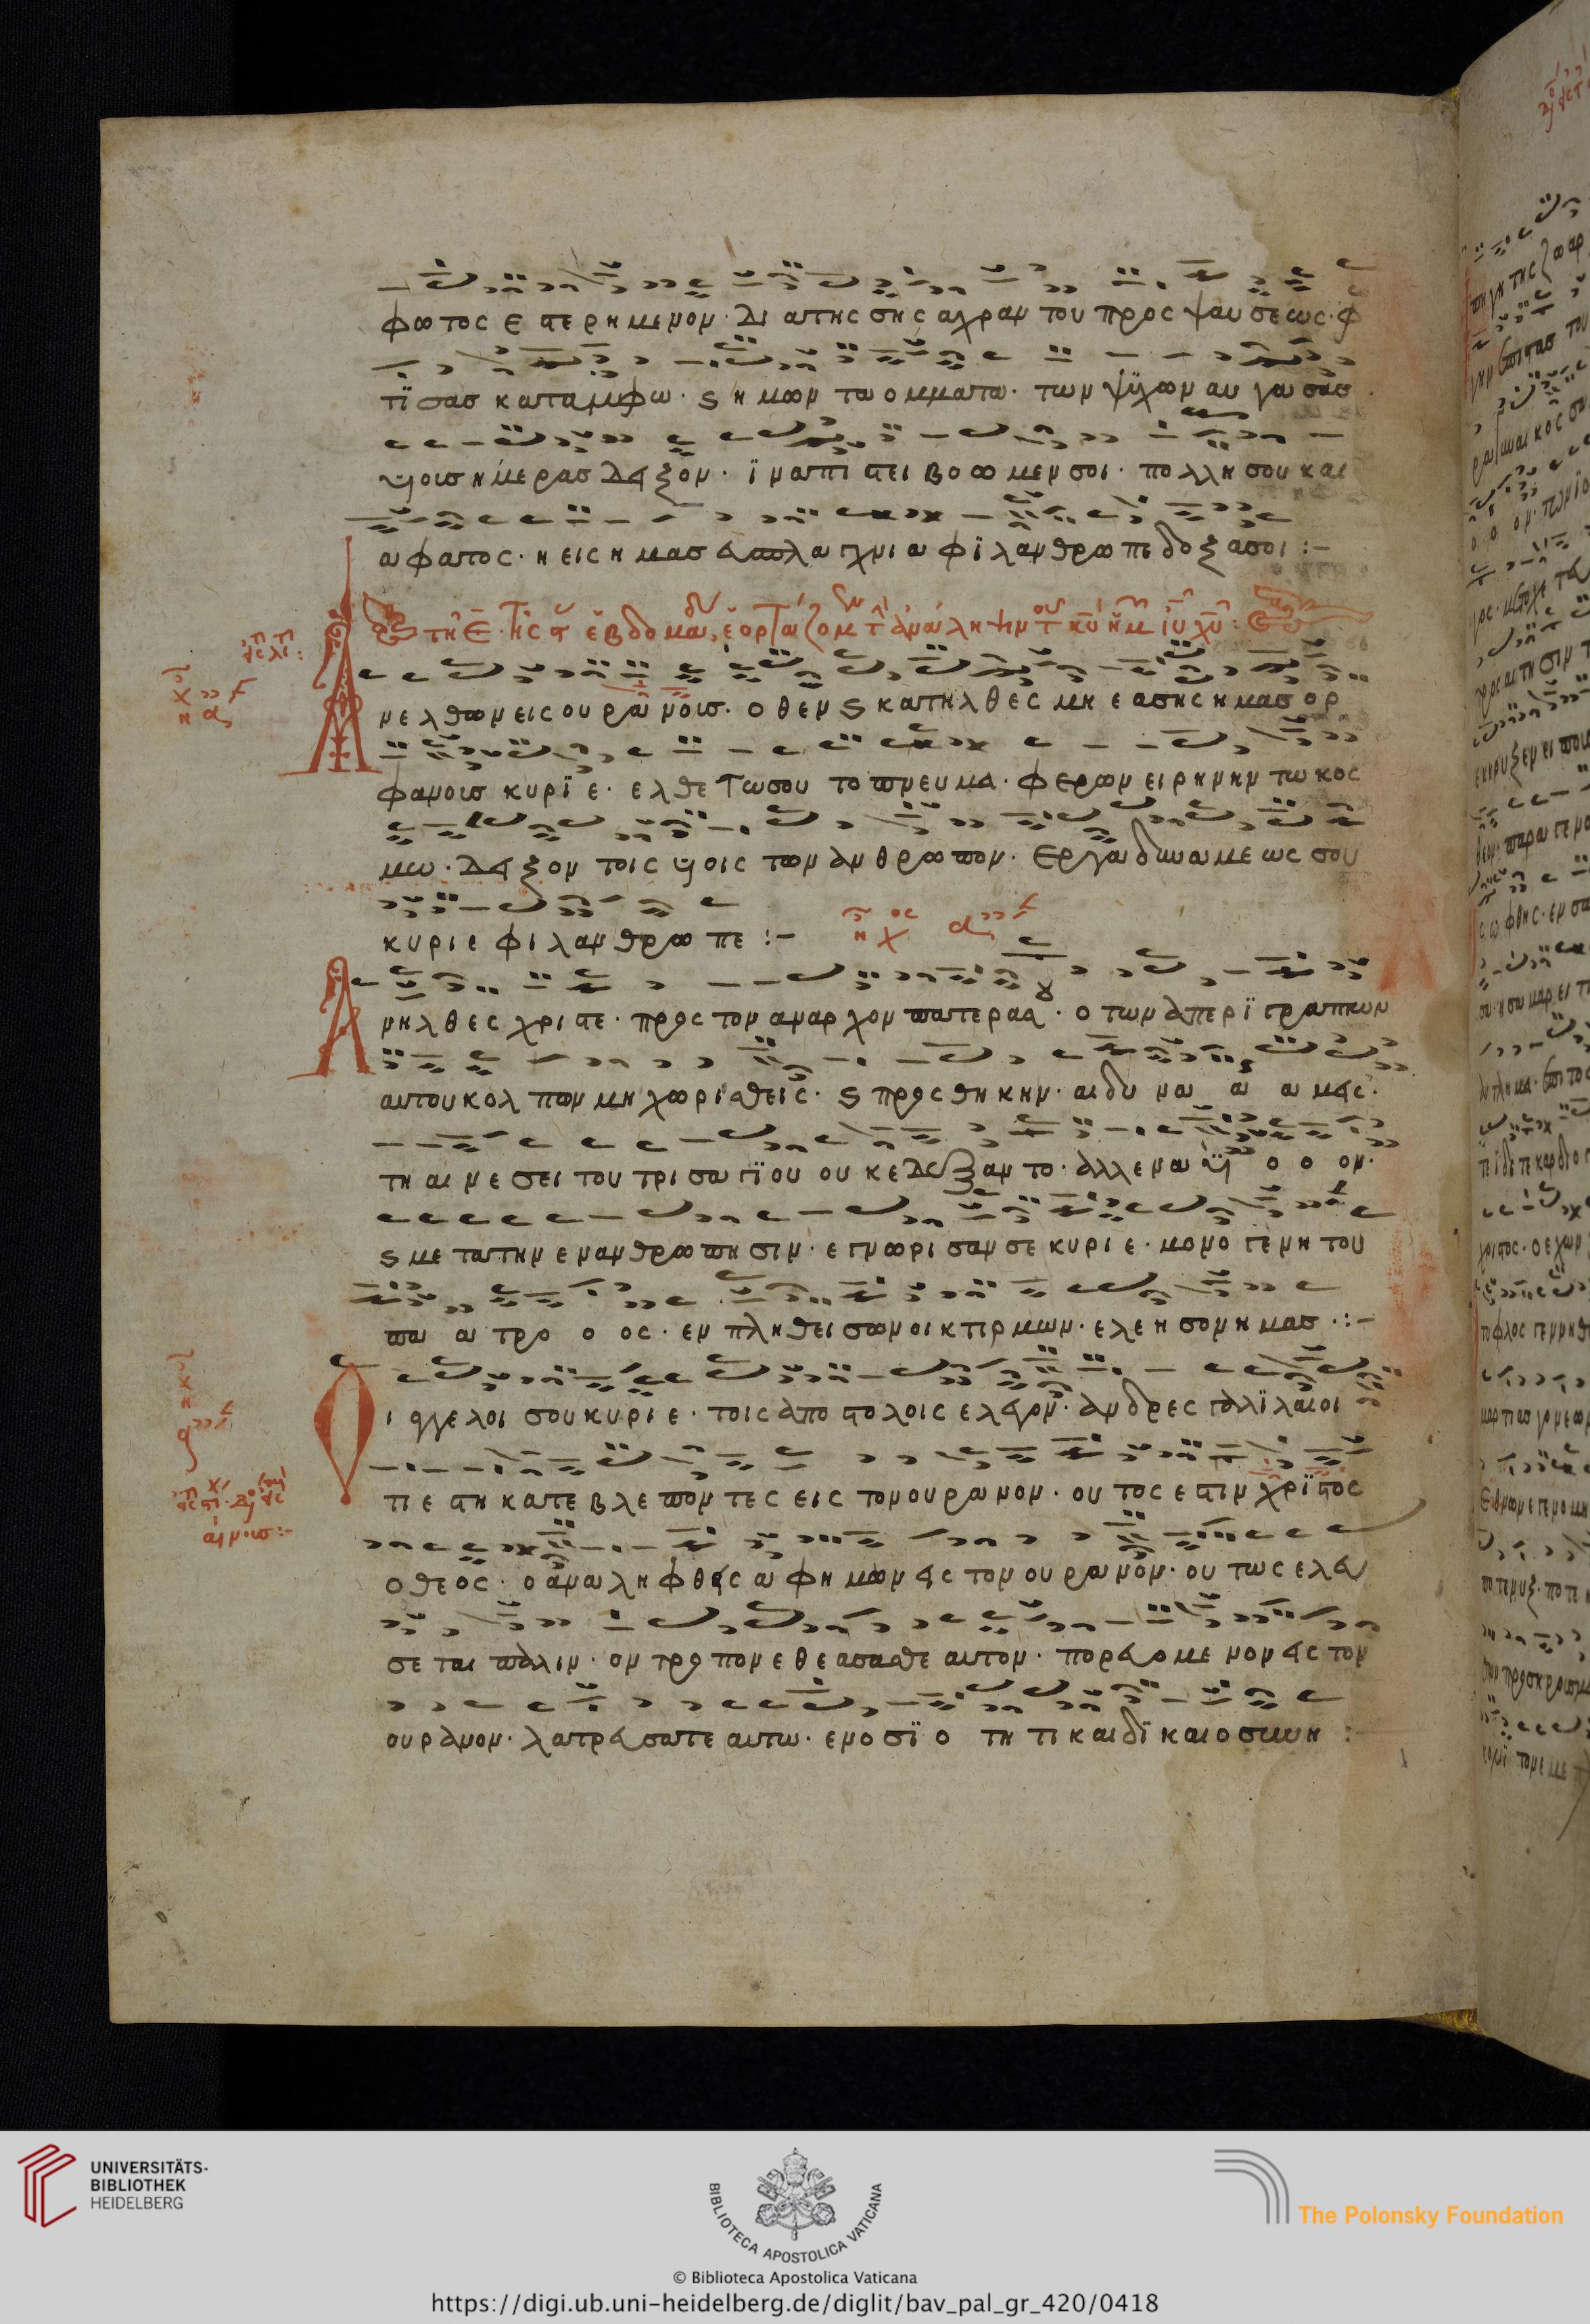 φωτος εστερημενον · δια της σης αχραντου προσψαυσεως · φ
τισας κατ αμφω · ϛ ημων τα ομματα · των ψυχων αυγασας
υιους ημερας δειξον · ϊνα πιστει βοωμεν σοι · πολλη σου και
αφατος · η εις ημας ευσπλαγχνια φιλανθρωπε δοξα σοι :-
τη ε της ϛ εβδομα εορταζομ τ αναληψιν τ κυ ημ ιυ χυ :
Ανελθων εις ουρανους · οθεν ϛ κατηλθες μη εασης ημας ορ
φανους κυριε · ελθετω σου το πνευμα · φερων ειρηνην τω κοσ
μω · δειξον τοις υιοις των ανθρωπων · εργα δυναμεως σου
κυριε φιλανθρωπε :-
Ανηλθες χριστε · προς τον αναρχον πατερα σου · ο των απεριγραπτων
αυτου κολπων μη χωρισθεις · ϛ προσθηκην · αι δυναααμεις ·
τη αινεσει του τρισαγιου ουκ εδεξαντο · αλλ ενα υιοοον ·
ϛ μετα την ενανθρωπησιν · εγνωρισαν σε κυριε · μονογενη του
πααατροοος · εν πληθει σων οικτιρμων · ελεησον ημας :-
Οι αγγελοι σου κυριε · τοις αποστολοις ελεγον · ανδρες γαλιλαιοι
τι εστηκατε βλεποντες εις τον ουρανον · ουτος εστιν χριστος
ο θεος · ο αναληφθεις αφ ημων εις τον ουρανον · ουτως ελευ
σεται παλιν · ον τροπον εθεασασθε αυτον · πορευομενον εις τον
ουρανον · λατρευσατε αυτω · εν οσιοτητι και δικαιοσυνη :
UNIVERSITÄTS-
BIBLIOTHEK
HEIDELBERG
BIBLIOTECA APOSTOLICA VATICANA
The Polonsky Foundation
© Biblioteca Apostolica Vaticana
https://digi.ub.uni-heidelberg.de/diglit/bav_pal_gr_420/0418